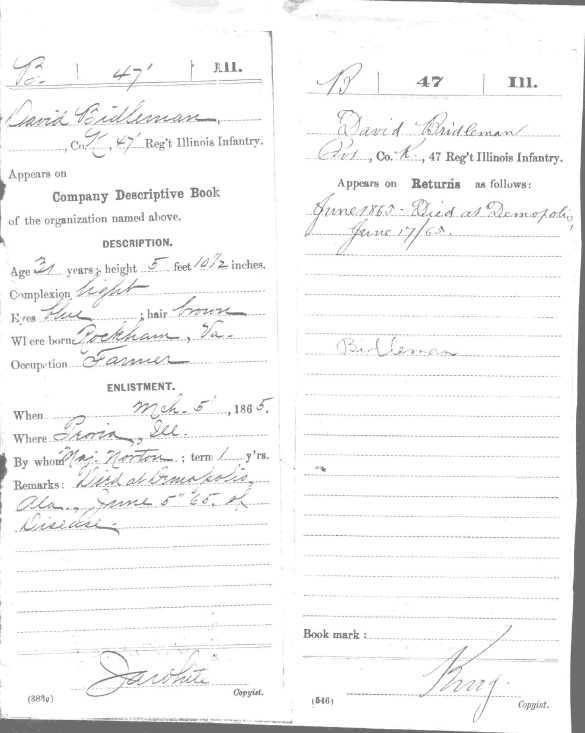 B. | 47' | Ill.
David Bidleman,
, Co. K, 47' Reg't Illinois Infantry.
Appears on
Company Descriptive Book
of the organization named above.
DESCRIPTION.
Age 31 years; height 5 feet 10½ inches.
Complexion light
Eyes blue ; hair brown
Where born Rockham, Va.
Occupation Farmer
ENLISTMENT.
When Mch. 5', 1865.
Where Peoria, Ill.
By whom Maj. Norton ; term 1 y'rs.
Remarks: Died at Demopolis,
Ala., June 5" 65. of
Disease.
J.A. White
(383g) Copyist.
B | 47 | Ill.
David Bridleman
Pvt, Co. K, 47 Reg't Illinois Infantry.
Appears on Returns as follows:
June 1865 - Died at Demopolis,
June 17/65.
Bidleman
Book mark :
King.
(546) Copyist.